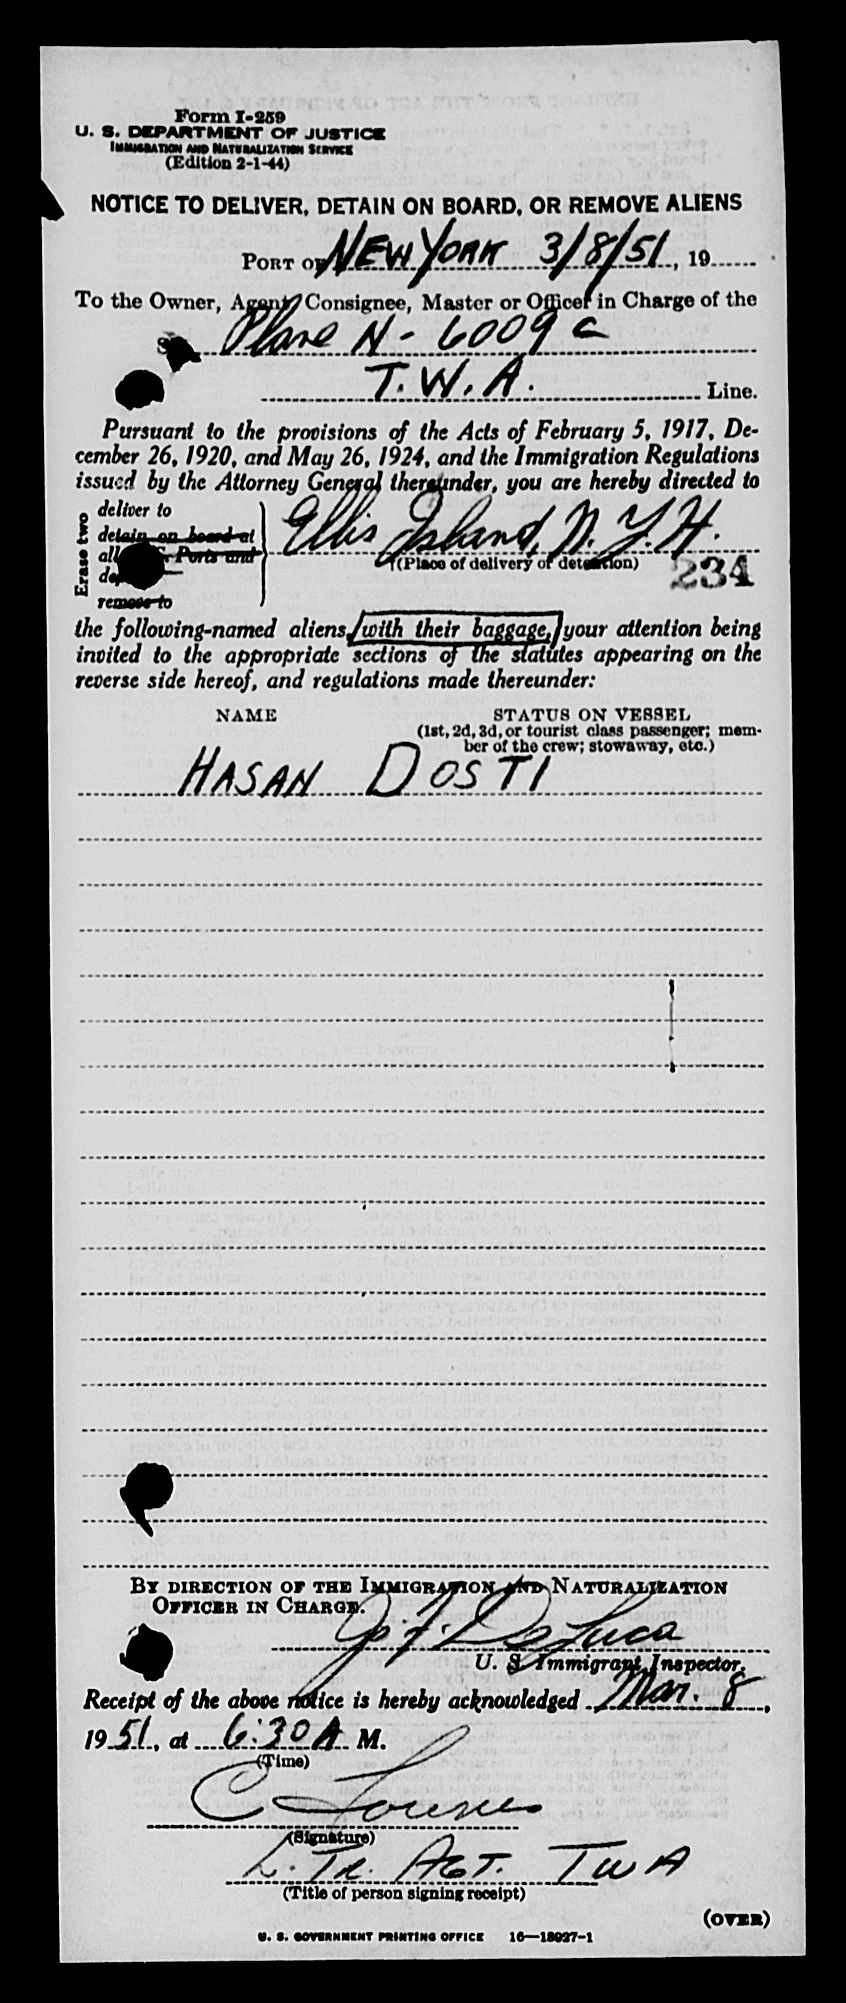 Form I-259
U. S. DEPARTMENT OF JUSTICE
IMMIGRATION AND NATURALIZATION SERVICE
(Edition 2-1-44)
NOTICE TO DELIVER, DETAIN ON BOARD, OR REMOVE ALIENS
PORT OF NEW YORK 3/8/51, 19
To the Owner, Agent, Consignee, Master or Officer in Charge of the
Plane N-6009 C
T.W.A. Line.
Pursuant to the provisions of the Acts of February 5, 1917, De-
cember 26, 1920, and May 26, 1924, and the Immigration Regulations
issued by the Attorney General thereunder, you are hereby directed to
Erase two
deliver to
detain on board at
Ports and
remove to
Ellis Island, N.Y.H.
(Place of delivery or detention)
234
the following-named aliens, with their baggage, your attention being
invited to the appropriate sections of the statutes appearing on the
reverse side hereof, and regulations made thereunder:
NAME STATUS ON VESSEL
(1st, 2d, 3d, or tourist class passenger; mem-
ber of the crew; stowaway, etc.)
HASAN DOSTI
BY DIRECTION OF THE IMMIGRATION AND NATURALIZATION
OFFICER IN CHARGE.
De Luca
U. S. Immigrant Inspector.
Receipt of the above notice is hereby acknowledged Mar. 8,
19 51, at 6:30 A M.
(Time)
C
(Signature)
Agt. TWA
(Title of person signing receipt)
(OVER)
U. S. GOVERNMENT PRINTING OFFICE 16—18027-1